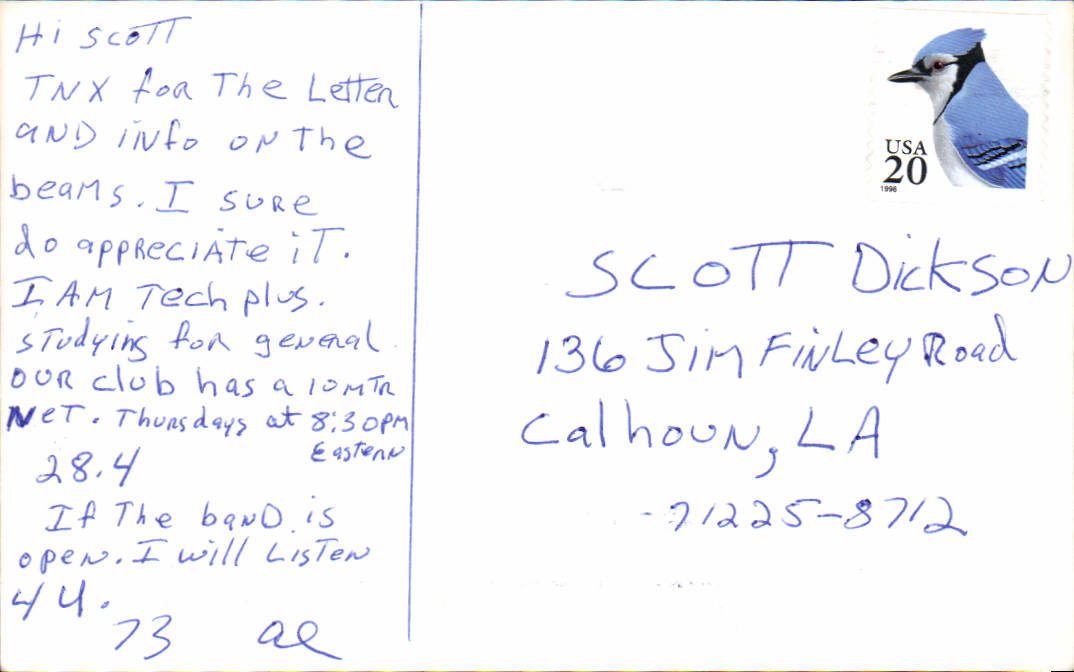 Hi Scott
TNX for The Letter
AND info on The
beams. I sure
do appreciate it.
I AM Tech plus.
studying for general.
our club has a 10 MTR
Net. Thursdays at 8:30 PM
Eastern
28.4
If The band is
open. I will Listen
4 U.
73 al
USA
20
1996
Scott Dickson
136 Jim Finley Road
Calhoun, LA
71225-8712